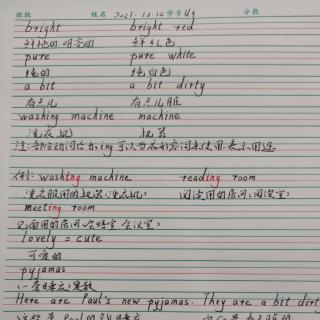 班级 姓名 2021.12.12 学号 U4 分数
bright bright red
鲜艳的 明亮的 鲜红色
pure pure white
纯的 纯白色
a bit a bit dirty
有点儿 有点儿脏
washing machine machine
洗衣机 机器
注: 可以当 来使用,表示用途
例: washing machine reading room
洗衣服用的机器(洗衣机) 阅读用的房间(阅览室)
meeting room
见面用的房间(会晤室 会议室)
lovely = cute
可爱的
pyjamas
(一套睡衣)复数
Here are Paul's new pyjamas. They are a bit dirty